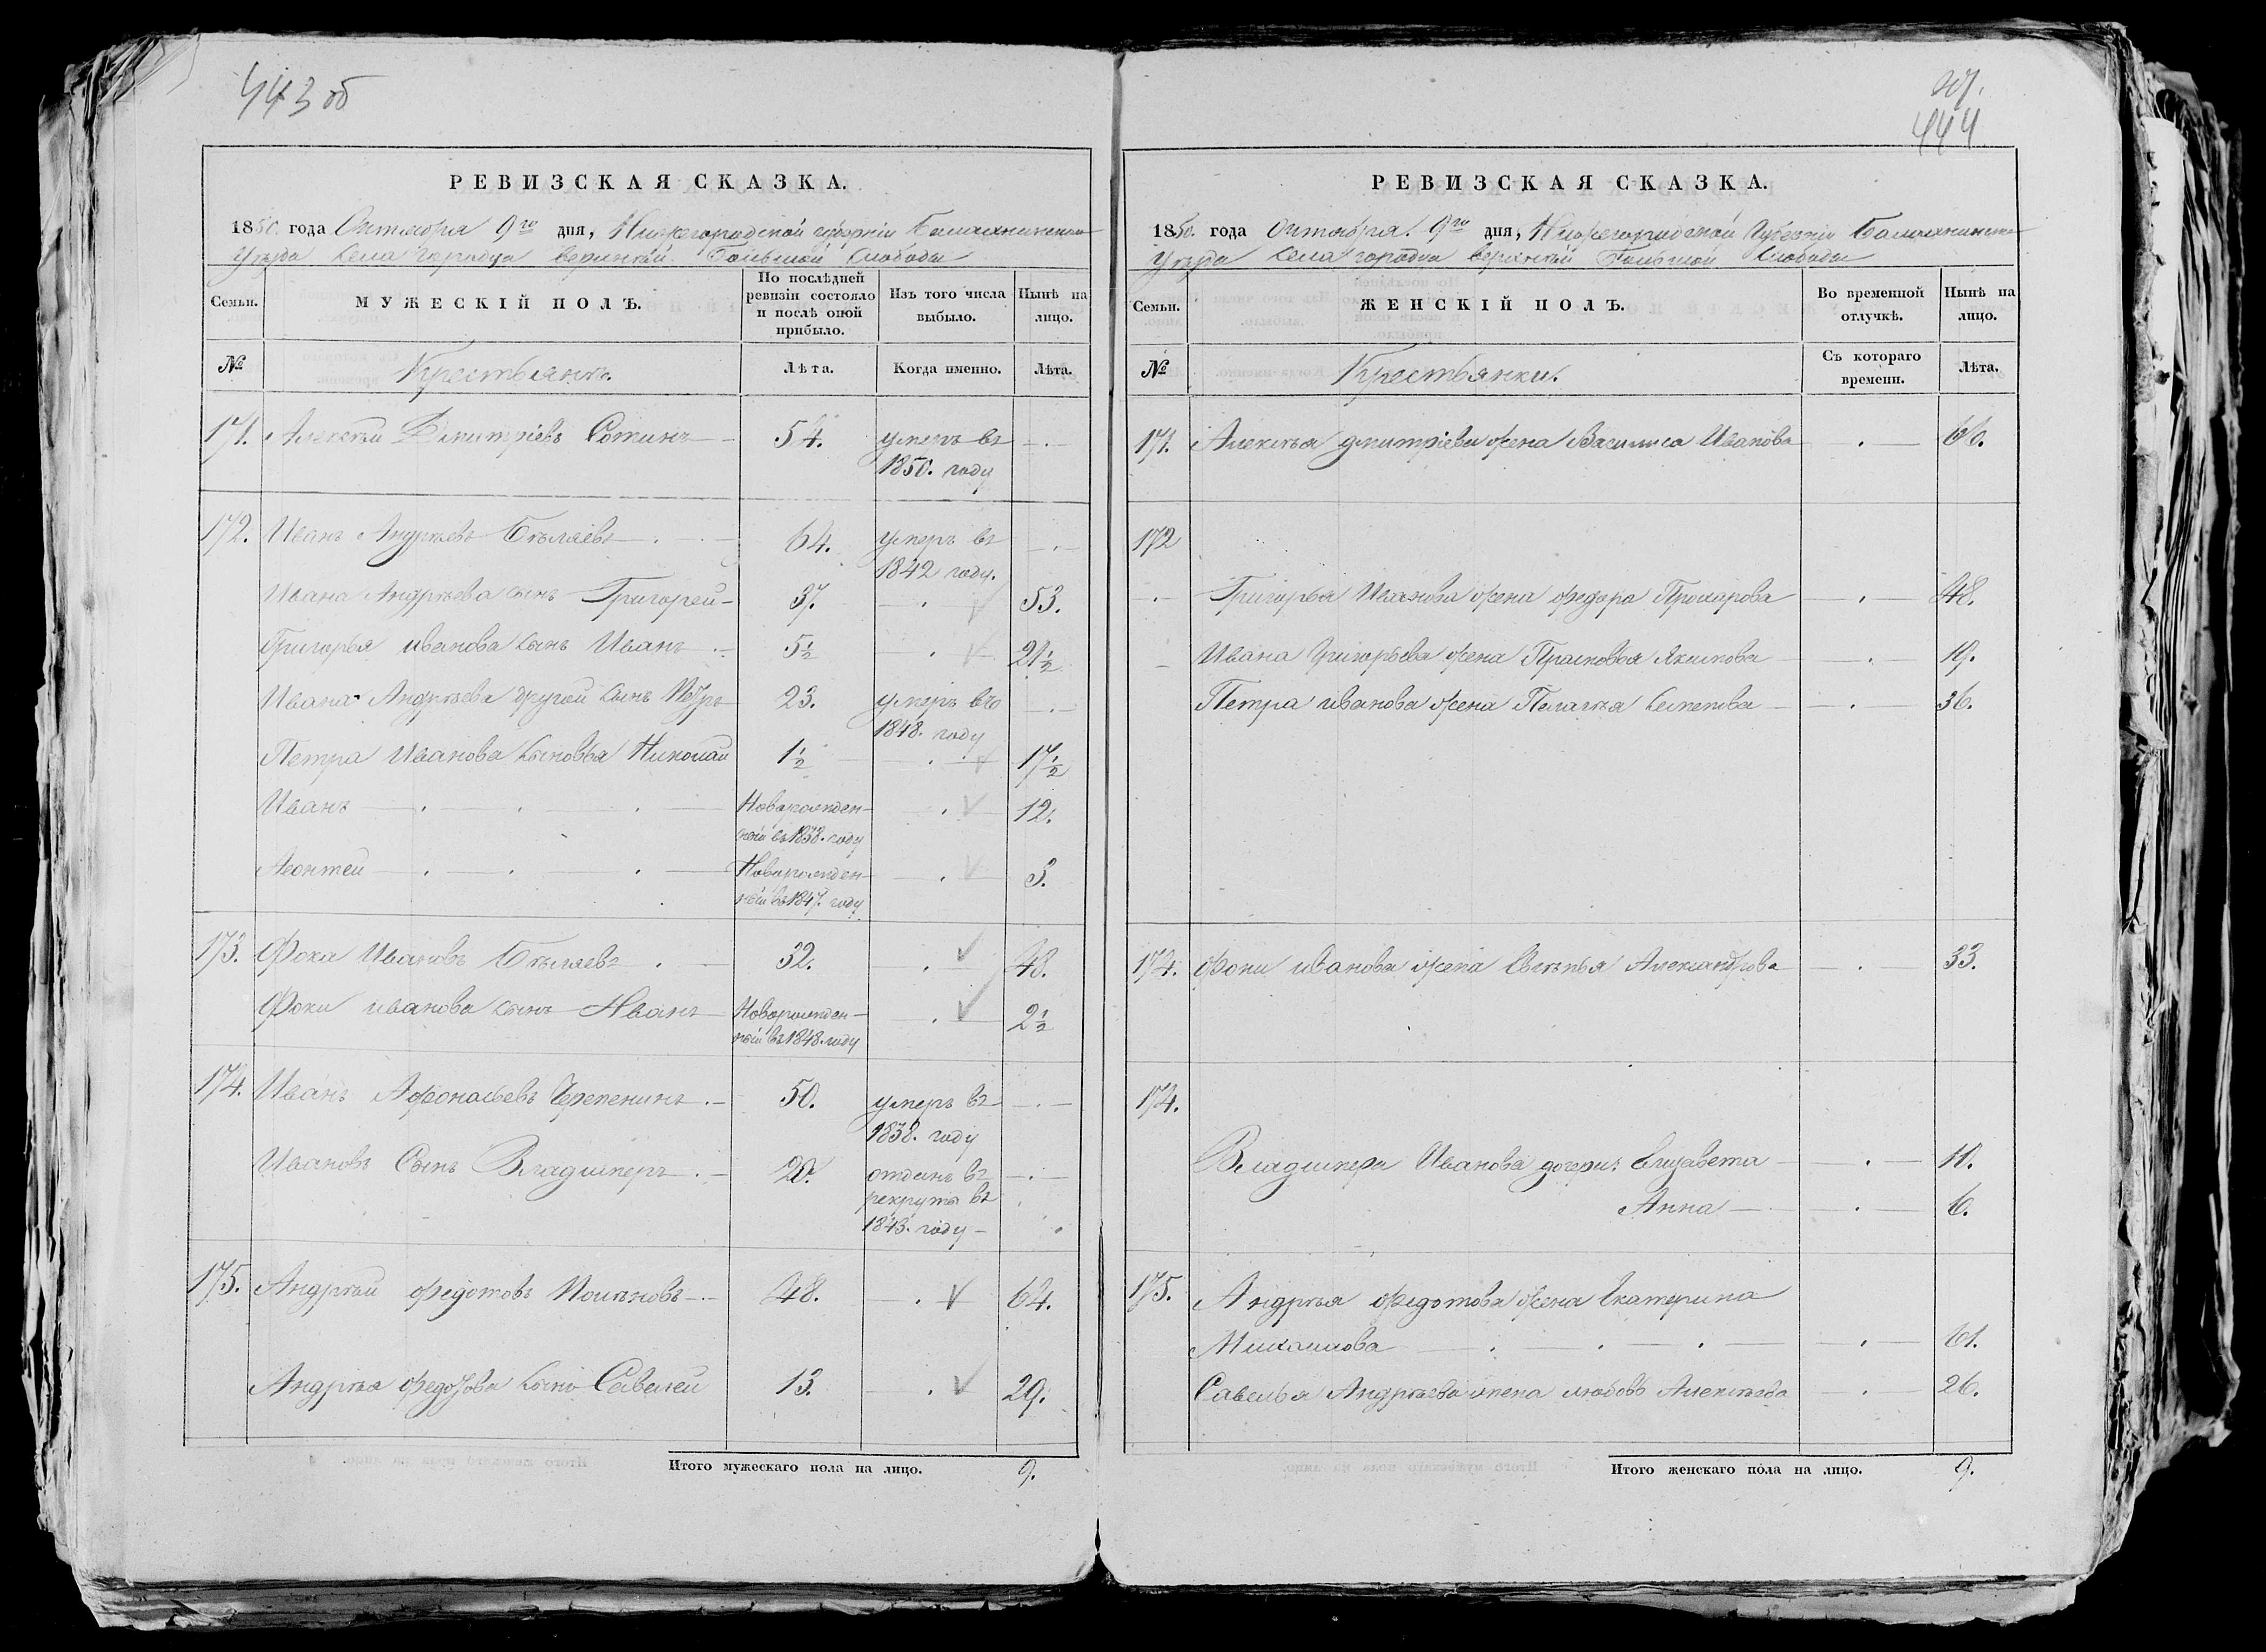 443 об
РЕВИЗСКАЯ СКАЗКА.
1850. года Октября 9го дня, Нижегородской губернии Балахнинскаго
Уѣзда Села Городца верхней Большой Слободы
Семьи.
МУЖЕСКІЙ ПОЛЪ.
По послѣдней ревизіи состояло и послѣ оной прибыло.
Изъ того числа выбыло.
Нынѣ на лицо.
№
Крестьянъ.
Лѣта.
Когда именно.
Лѣта.
171. Алексѣй Димитріевъ Сотинъ 54. умеръ въ
1850. году
172. Иванъ Андреевъ Бѣляевъ 64. умеръ въ
1842 году.
Ивана Андрѣева сынъ Григорей 37. 53.
Григорья иванова сынъ Иванъ 5½ 21½
Ивана Андрѣева другой сынъ Петръ 23. умеръ въ
1848. году
Петра Иванова сыновья Николай 1½ 17½
Иванъ Новорожден- 12.
ный въ 1838. году
Леонтей Новорожден- 3.
ный въ 1847. году
173. Фока Ивановъ Бѣляевъ 32. 48.
Фоки иванова сынъ Иванъ Новорожден- 2½
ный въ 1848 году
174. Иванъ Афонасьевъ Черепенинъ 50. умеръ въ
1838. году
Ивановъ Сынъ Владимеръ 20. отданъ въ
рекруты въ
1843. году
175. Андрѣй федотовъ 48. 64.
Андрѣя федотова сынъ Савелей 13. 29.
Итого мужескаго пола на лицо. 9.
444
РЕВИЗСКАЯ СКАЗКА.
1850. года октября 9го дня, Нижегородской Губерніи Балахнинскаго
Уѣзда Села городца верхней Большой Слободы
Семьи.
ЖЕНСКІЙ ПОЛЪ.
Во временной отлучкѣ.
Нынѣ на лицо.
№
Крестьянки.
Съ котораго времени.
Лѣта.
171. Алексѣя дмитріева жена Василиса Иванова 66.
172
Григорья Иванова жена федора Прохорова 48.
Ивана Григорьева жена Прасковья Якимова 19.
Петра иванова жена Пелагѣя Семенова 36.
174. Фоки иванова жена Александрова 33.
174.
Владимера Иванова дочери: Елизавета 11.
Анна 6.
175. Андрѣя федотова жена Екатерина
Михайлова 61.
Савелья Андрѣева жена любовь Алексѣева 26.
Итого женскаго пола на лицо. 9.